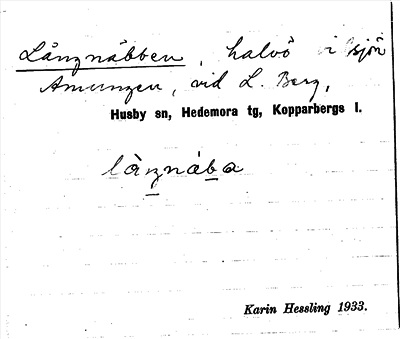 Långnäbben, halvö i sjön
Amungen, vid L. Berg,
Husby sn, Hedemora tg, Kopparbergs l.
lång nába
Karin Hessling 1933.